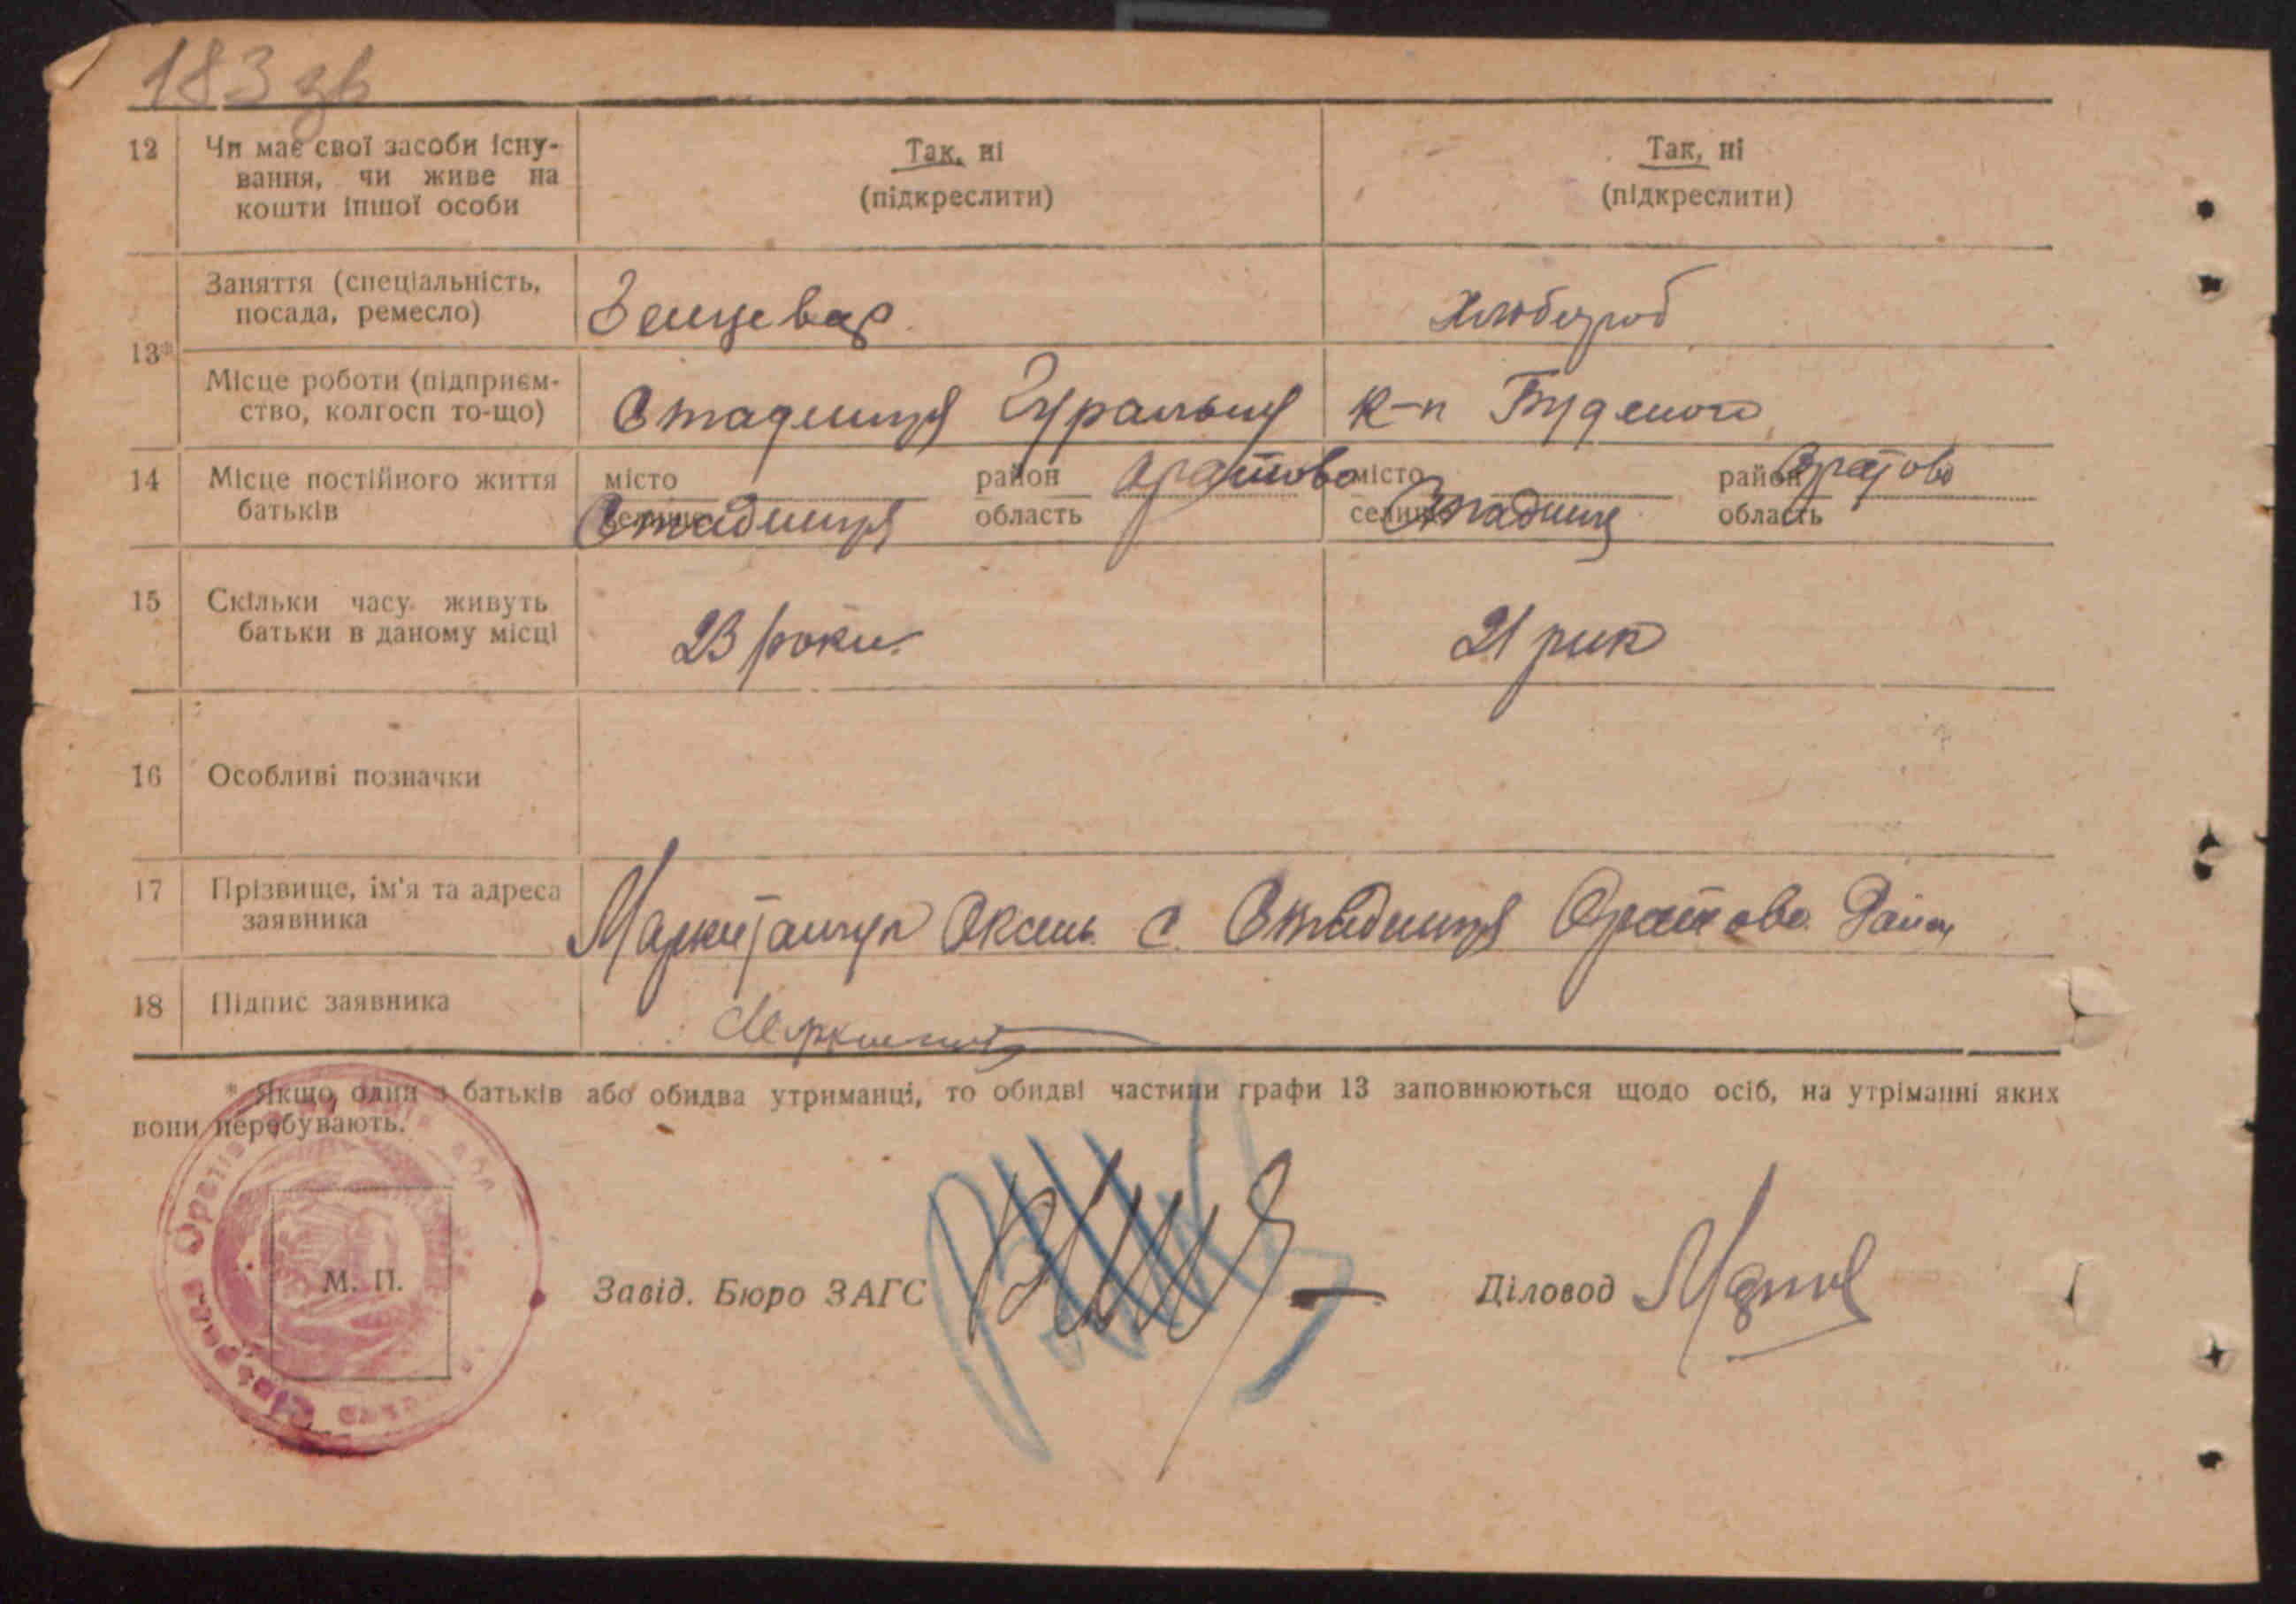 183 зв
12 Чи має свої засоби існу- Так, ні Так, ні
вання, чи живе на (підкреслити) (підкреслити)
кошти іншої особи
Заняття (спеціальність, хлібороб
посада, ремесло)
13*
Місце роботи (підприєм- Стадниця Гуральня к-п Будьоного
ство, колгосп то-що)
14 Місце постійного життя місто район Оратово місто район Оратово
батьків селище Стадниця область селище Стадниця область
15 Скільки часу живуть 23 роки. 21 рик
батьки в даному місці
16 Особливі позначки
17 Прізвище, ім'я та адреса
заявника Маркитанчук Оксень с. Стадниця Оратово Район
18 Підпис заявника
* Якщо один з батьків або обидва утриманці, то обидві частини графи 13 заповнюються щодо осіб, на утріманні яких
вони перебувають.
М. П. Завід. Бюро ЗАГС Діловод